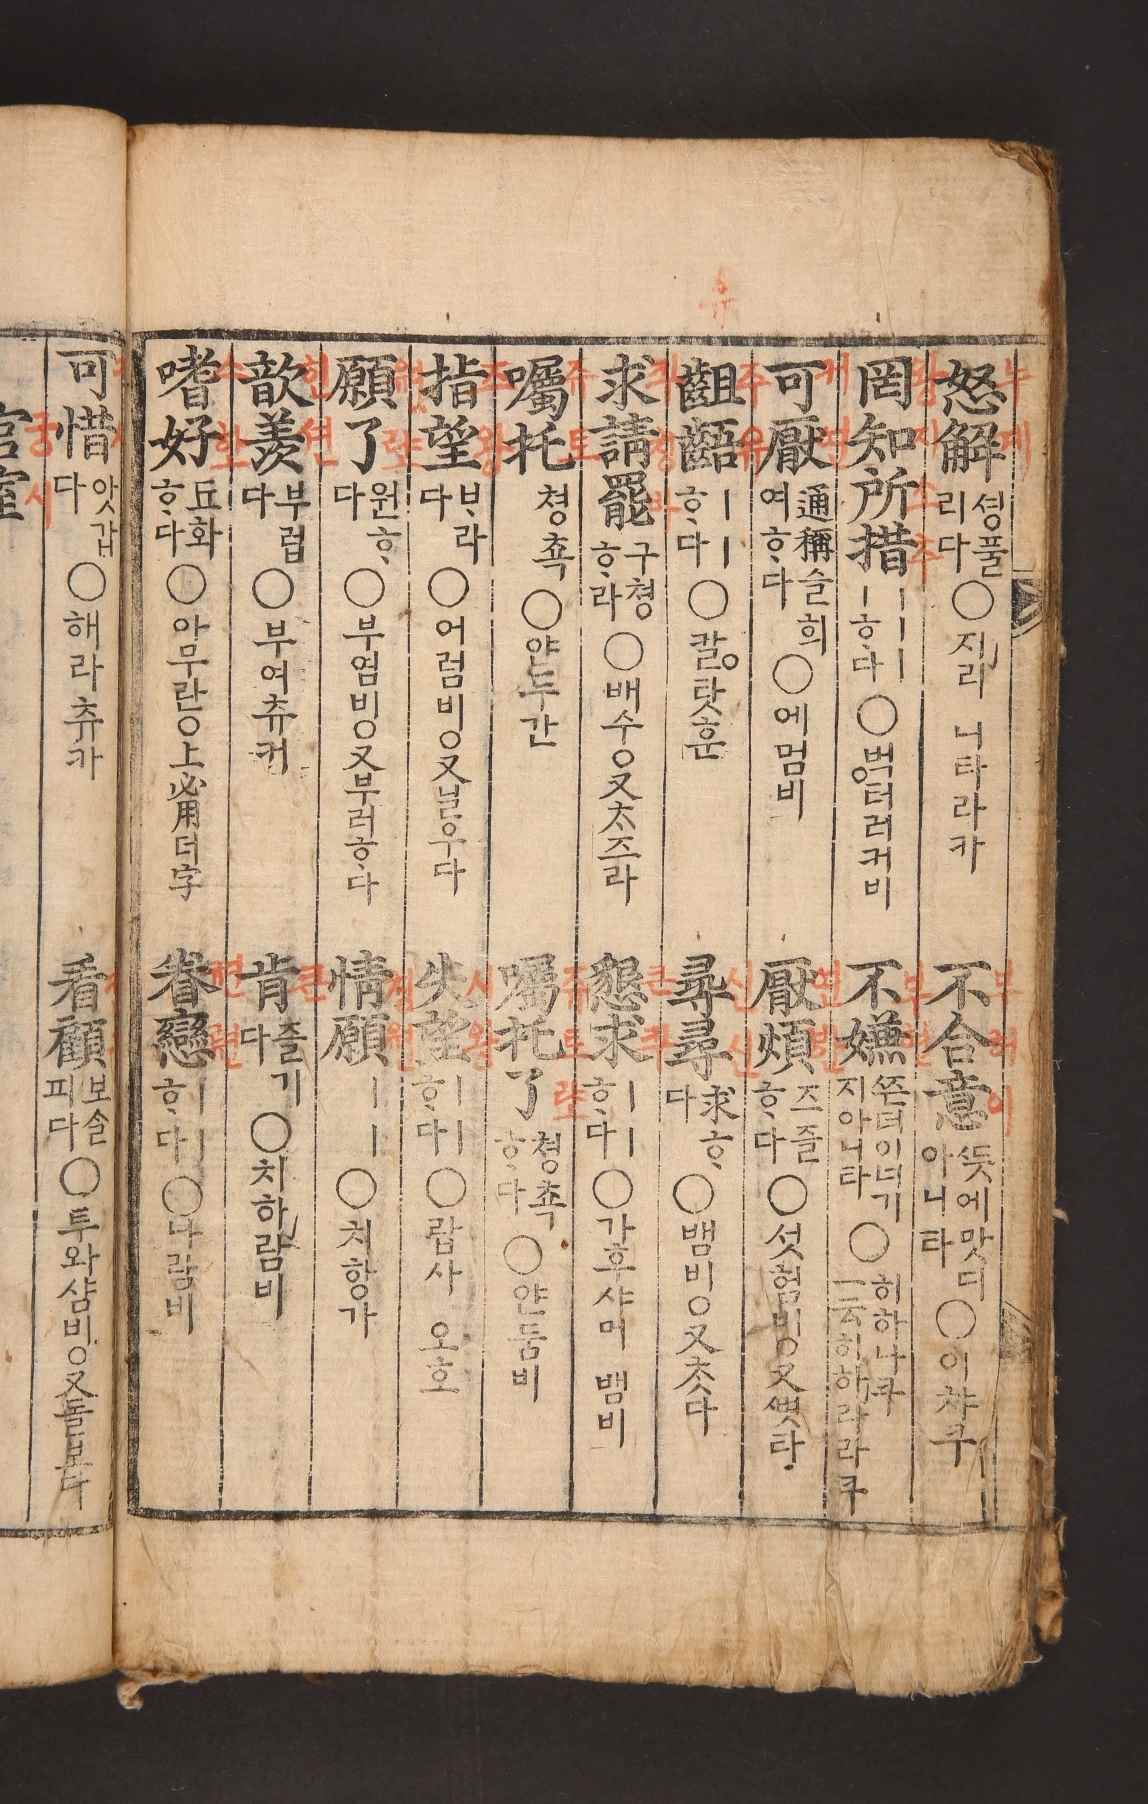 怒解 셩풀리다 ○ 지리 니타라카
不合意 뜻에맛디아니타 ○ 이챠쿠
罔知所措 丨丨丨丨ᄒᆞ다 ○ 벅터러커비
不嫌 쯘더이너기지아니타 ○ 히하나쿠 一云히하라라쿠
可厭 通稱슬희여ᄒᆞ다 ○ 에멈비
厭煩 즈즐ᄒᆞ다 ○ 섯험비○又썻타
齟齬 丨丨ᄒᆞ다 ○ 칼탓훈
尋尋 求ᄒᆞ다 ○ 뱀비○又촛다
求請罷 구쳥ᄒᆞ라 ○ 배수○又太조라
懇求 丨丨ᄒᆞ다 ○ 가후샤머 뱀비
囑托 쳥쵹 ○ 얀두간
囑托了 쳥쵹ᄒᆞ다 ○ 얀둠비
指望 ᄇᆞ라다 ○ 어럼비○又닐우다
失望 丨丨ᄒᆞ다 ○ 랍사 오호
願了 원ᄒᆞ다 ○ 부염비○又부러ᄒᆞ다
情願 丨丨 ○ 치항가
歆羨 부럽다 ○ 부여츄커
肯 즐기다 ○ 치하람비
嗜好 됴화ᄒᆞ다 ○ 아무란○上必用더字
眷戀 丨丨ᄒᆞ다 ○ 나람비
可惜 앗갑다 ○ 해라츄카
看顧 보슬피다 ○ 투와샴비○又돌보다
宮室